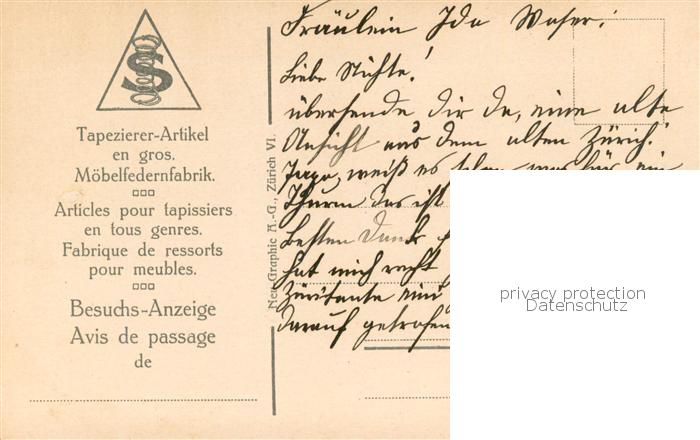 S
Tapezierer-Artikel
en gros.
Möbelfedernfabrik.
Articles pour tapissiers
en tous genres.
Fabrique de ressorts
pour meubles.
Besuchs-Anzeige
Avis de passage
de
Neu Graphic A.-G., Zürich VI.
Fräulein Ida Waser!
Liebe Nichte!
übersende Dir da, eine alte
Ansicht aus dem alten Zürich.
weiß es schon was für ein
Thurm das ist
besten Dank
hat mich recht
Züritante
darauf getrofen
privacy protection
Datenschutz